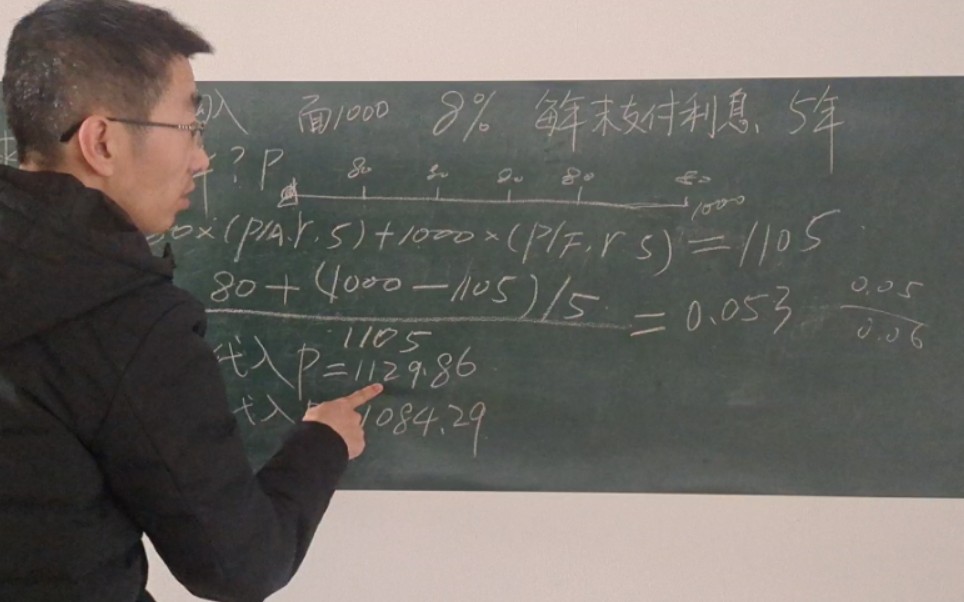 入 面1000 8% 每年末支付利息、5年
? P 80 80 80 80 80
1000
0×(P/A,r,5)+1000×(P/F,r 5)=1105
80+(1000-1105)/5
1105
=0.053 0.05
0.06
代入P=1129.86
代入 1084.29